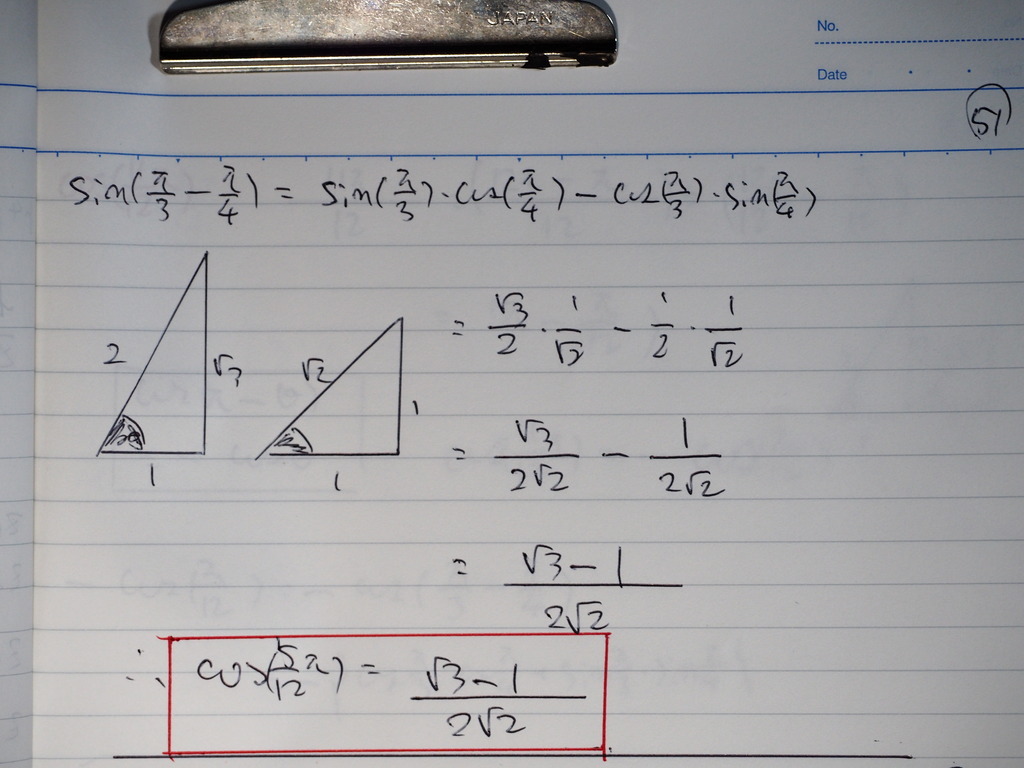 JAPAN
No.
Date
51
sin(π/3 − π/4) = sin(π/3)·cos(π/4) − cos(π/3)·sin(π/4)
= √3/2 · 1/√2 − 1/2 · 1/√2
2 √3 1
√2 1 1
= √3/2√2 − 1/2√2
= √3−1/2√2
∴ cos(5/12 π) = √3−1/2√2